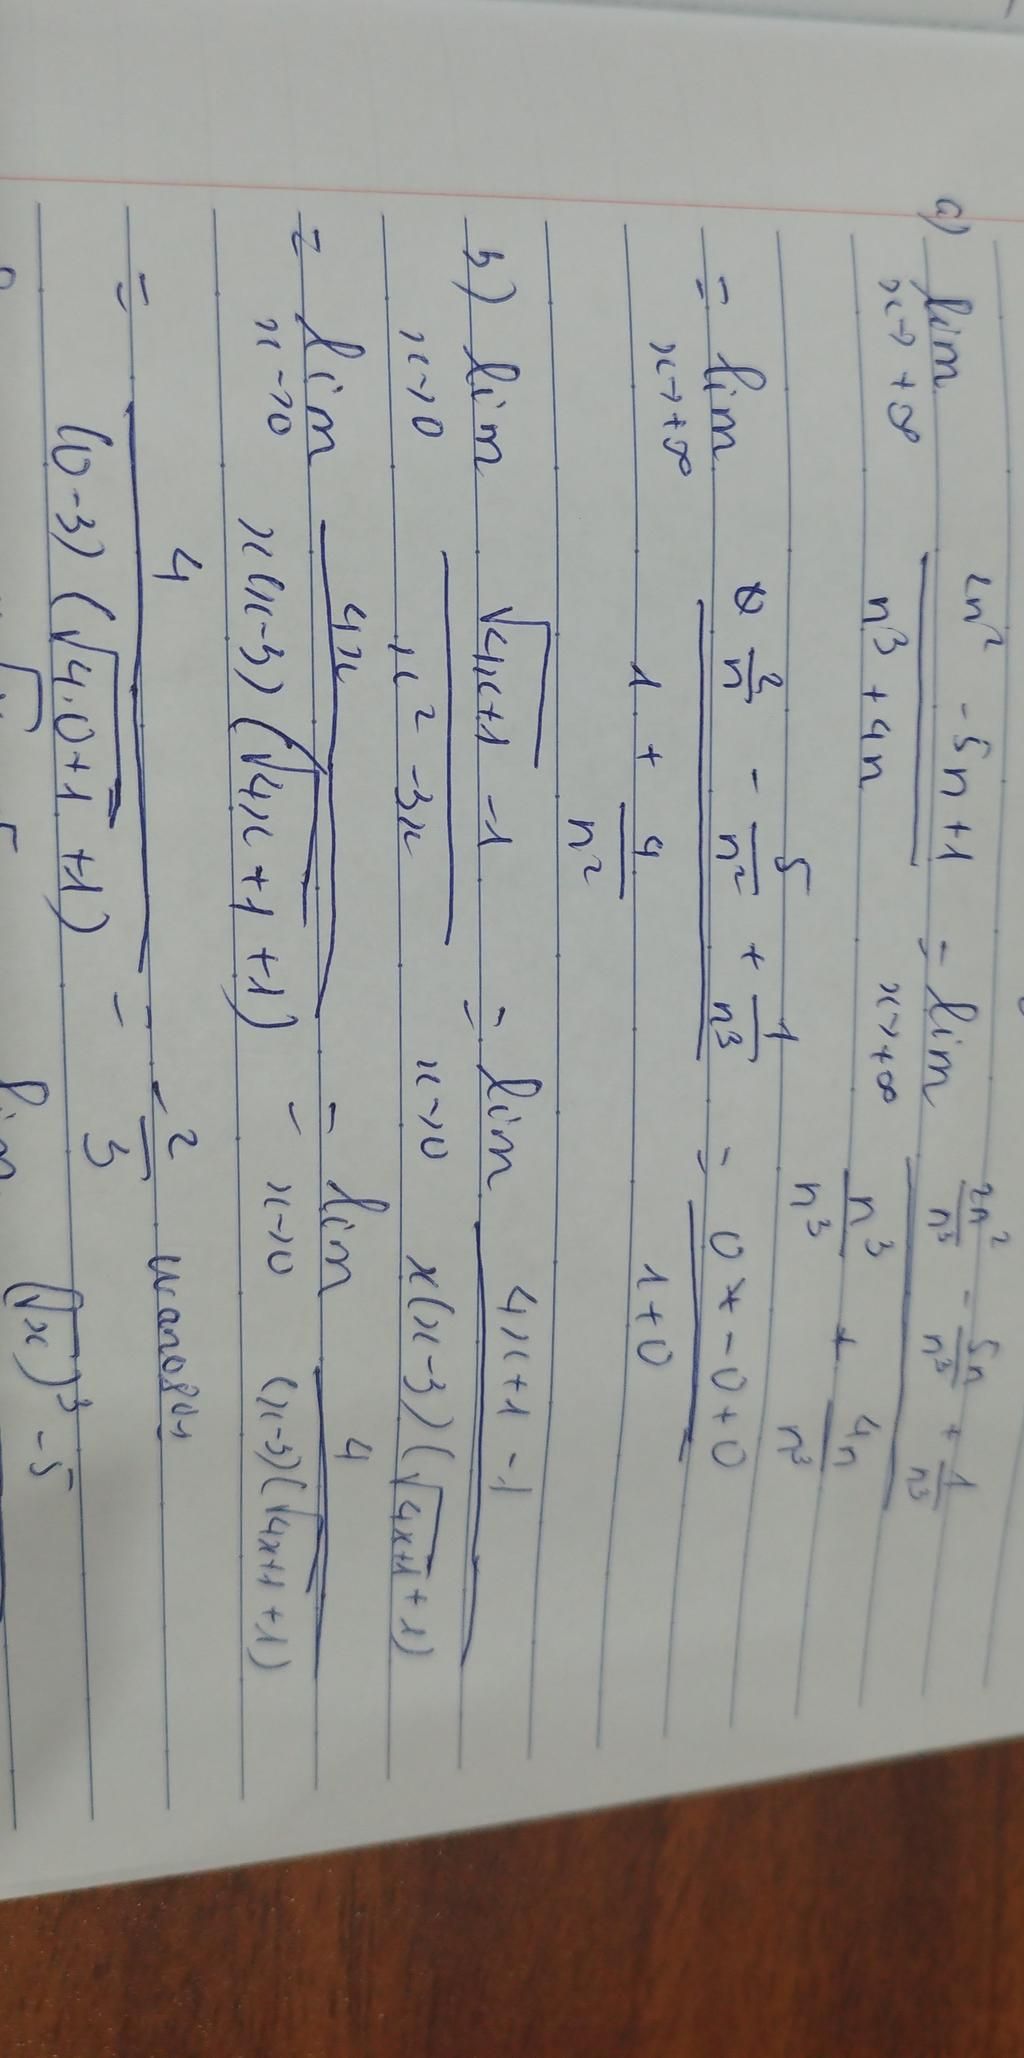 a) lim x→+∞ (2n² - 5n + 1)/(n³ + 4n) = lim x→+∞ (2n²/n³ - 5n/n³ + 1/n³)/(n³/n³ + 4n/n³)
= lim x→+∞ (2/n - 5/n² + 1/n³)/(1 + 4/n²) = (0 - 0 + 0)/(1 + 0)
b) lim x→0 (√(4x+1) - 1)/(x² - 3x) = lim x→0 (4x+1 - 1)/(x(x-3)(√(4x+1) + 1))
= lim x→0 4x/(x(x-3)(√(4x+1) + 1)) = lim x→0 4/((x-3)(√(4x+1) + 1))
= 4/((0-3)(√(4.0+1) + 1)) = -2/3
lim (√x)³ - 5